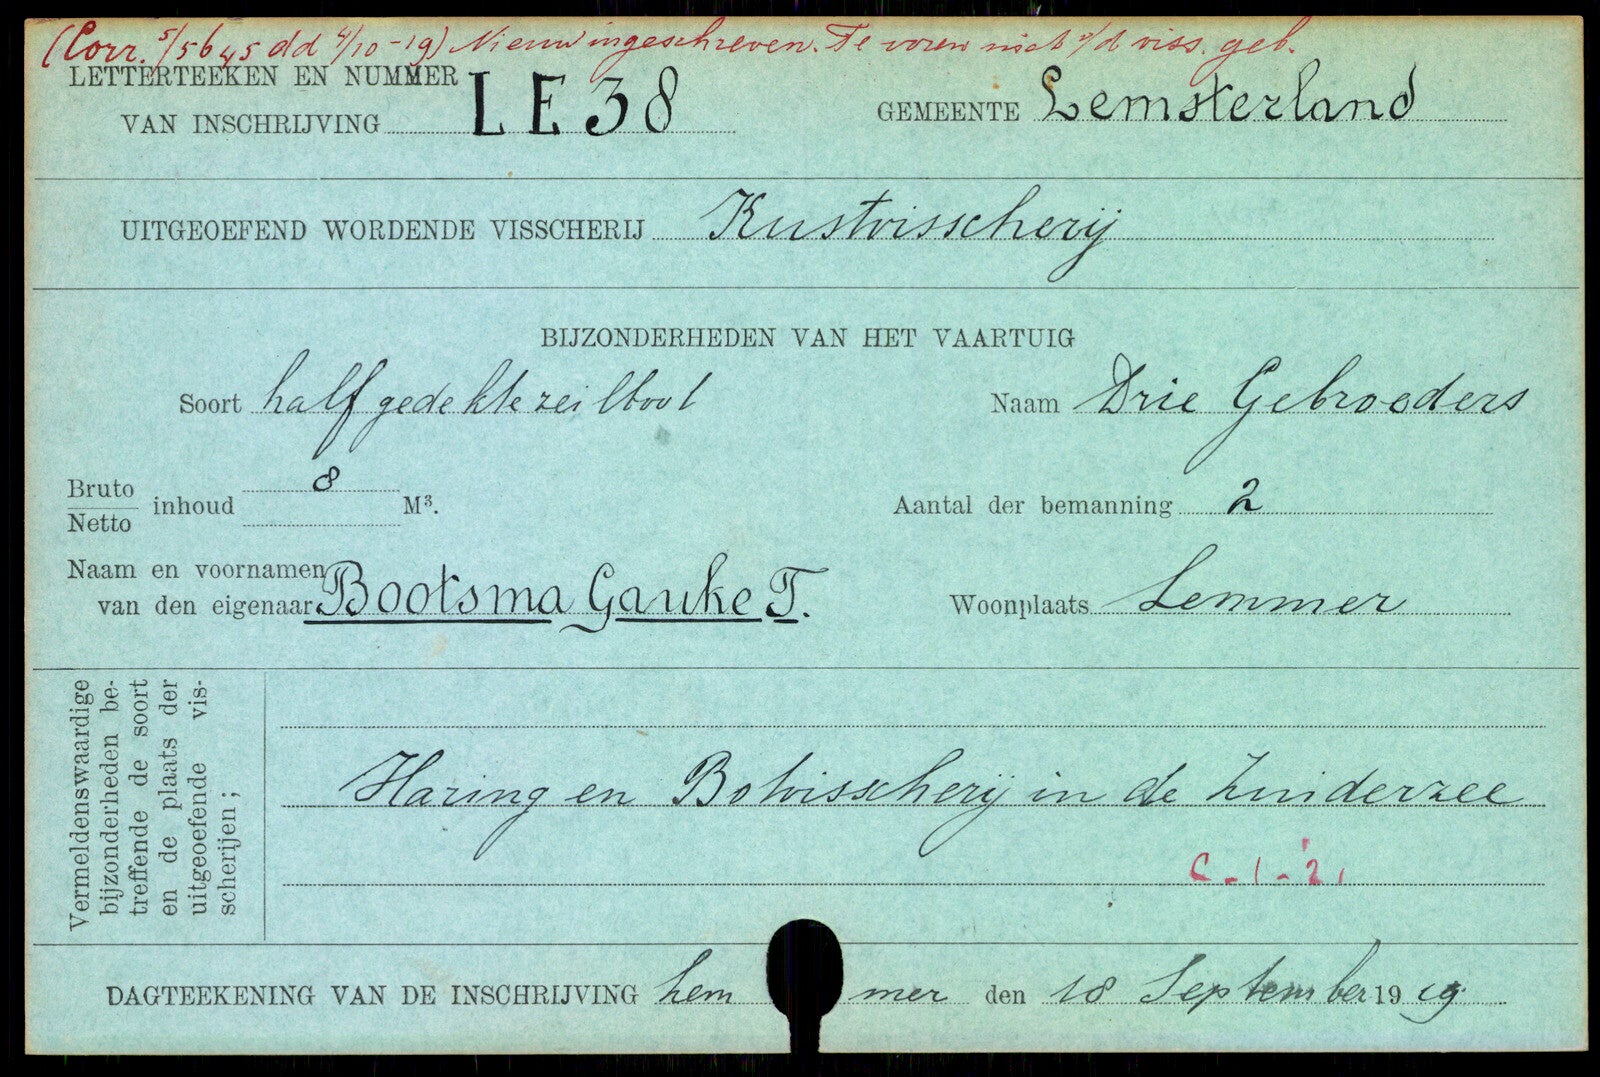 (Corr. 5/5645 dd 4/10-19) Nieuw ingeschreven. Te voren niet v/d viss. geb.
LETTERTEEKEN EN NUMMER
VAN INSCHRIJVING LE 38 GEMEENTE Lemsterland
UITGEOEFEND WORDENDE VISSCHERIJ Kustvisscherij
BIJZONDERHEDEN VAN HET VAARTUIG
Soort half gedekte zeilboot Naam Drie Gebroeders
Bruto 8
inhoud M³. Aantal der bemanning 2
Netto
Naam en voornamen
van den eigenaar Bootsma Gauke T. Woonplaats Lemmer
Vermeldenswaardige
bijzonderheden be-
treffende de soort
en de plaats der
uitgeoefende vis-
scherijen;
Haring en Botvisscherij in de Zuiderzee
C-1-'21
DAGTEEKENING VAN DE INSCHRIJVING Lemmer den 18 September 1919